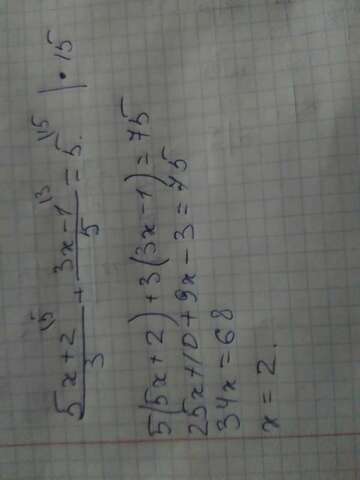 (5x+2)/3 + (3x-1)/5 = 5. | • 15
5(5x+2)+3(3x-1)=75
25x+10+9x-3=75
34x=68
x=2.